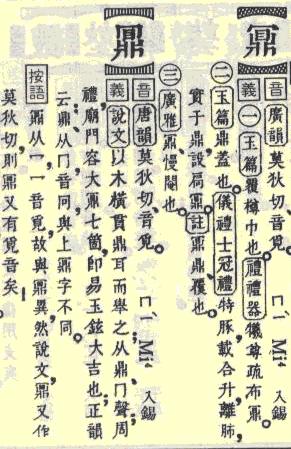 鼏
音 廣韻莫狄切,音覓。ㄇㄧˋ Mi⁴ 入錫
義 ㊀玉篇覆樽巾也。禮禮器犧尊疏布鼏。
㊁玉篇鼎蓋也。儀禮士冠禮特豚,載合升,離肺,
實于鼎設扃鼏。註鼏,鼎覆也。
㊂廣雅鼏慢也。
鼏
音 唐韻莫狄切,音覓。ㄇㄧˋ Mi⁴ 入錫
義 說文以木橫貫鼎耳而舉之从鼎冂聲,周
禮,廟門容大鼏七箇,即易玉鉉大吉也;正韻
云,鼏从冂音冋,與上鼏字不同。
按語 鼏从冖冖音覓,故與鼏異,然說文鼏又作
莫狄切,則鼏又有覓音矣。